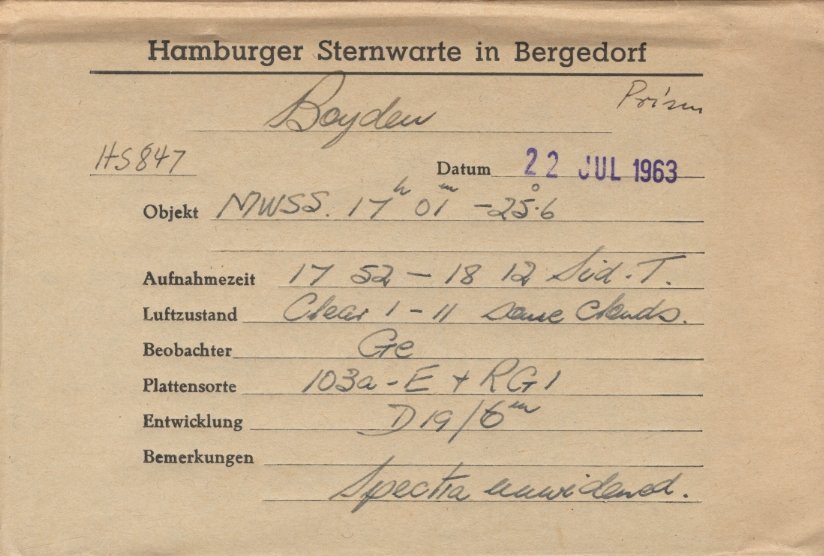 Hamburger Sternwarte in Bergedorf
Prism
Boyden
HS847
Datum 22 JUL 1963
Objekt MWSS. 17h 01m -25°.6
Aufnahmezeit 17 52 - 18 12 Sid. T.
Luftzustand Clear I - II some clouds.
Beobachter Ge
Plattensorte 103a-E + RG1
Entwicklung D19/6m
Bemerkungen
Spectra unwidened.